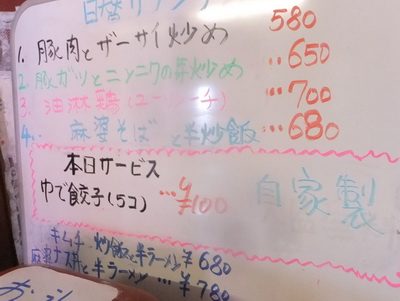 日替りランチ
580
1. 豚肉とザーサイ炒め …650
2. 豚ガツとニンニクの芽炒め
3. 油淋鶏(ユーリンチ) …700
4. 麻婆そばと半炒飯 …680
本日サービス
ゆで餃子(5コ) …¥100
自家製
キムチ炒飯と半ラーメン ¥680
麻婆ナス丼と半ラーメン…¥780